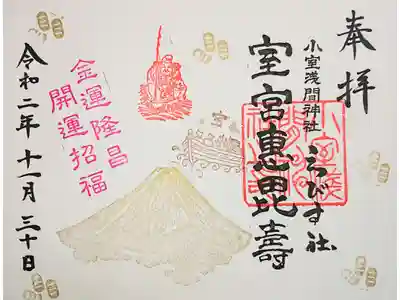 奉拝
小室浅間神社
ゑびす社
室宮惠毘壽
宝
金運隆昌
開運招福
令和二年十一月三十日